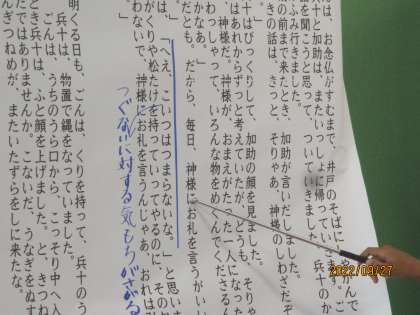 は、お念仏がすむまで、井戸のそばにしゃがんで
兵十と加助は、またいっしょに帰っていきます。ご
話を聞こうと思って、ついていきました。兵十のか
ふみ行きました。
の前まで来たとき、加助が言いだしました。
きの話は、きっと、そりゃあ、神様のしわざだぞ
十はびっくりして、加助の顔を見ました。
はあれからずっと考えていたが、どうも、そりゃ
神様だ。神様が、おまえがたった一人になった
わっしゃって、いろんな物をめぐんでくださるん
かなあ。」
だとも。だから、毎日、神様にお礼を言うがいい
「へえ、こいつはつまらないな。」と思い
がくりや松たけを持っていってやるのに、その
わないで、神様にお礼を言うんじゃあ、おれは
つぐないに対する気もちがさがる
明くる日も、ごんは、くりを持って、兵十のう
兵十は、物置で縄をなっていました。
ごんは、うちのうら口から、こっそり中へ入
とき兵十は、ふと顔を上げました。と、きつね
たではありませんか。こないだ、うなぎをぬす
んぎつねめが、またいたずらをしに来たな。
2022/09/27